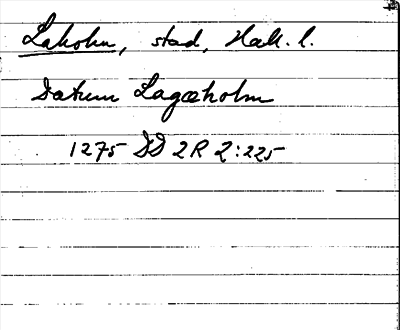 Laholm, stad, Hall. l.
Datum Lagæholm
1275 DD 2R 2:225